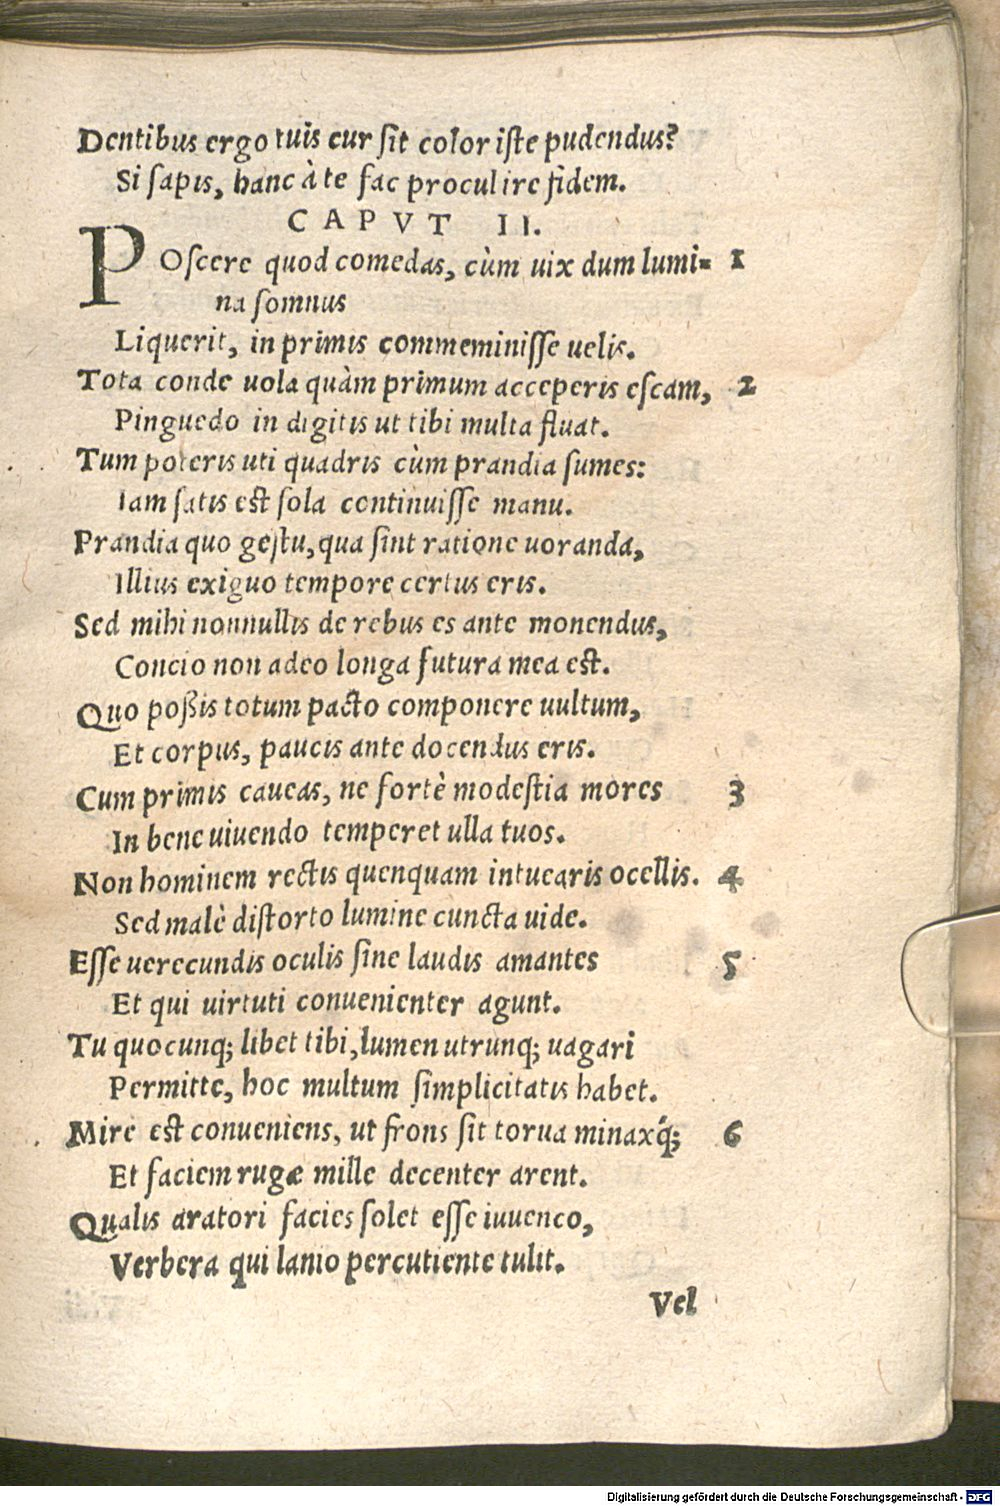 Dentibus ergo tuis cur sit color iste pudendus?
Si sapis, hanc à te fac procul ire fidem.
CAPVT II.
POscere quod comedas, cùm uix dum lumi= 1
na somnus
Liquerit, in primis commeminisse uelis.
Tota conde uola quàm primum acceperis escam, 2
Pinguedo in digitis ut tibi multa fluat.
Tum poteris uti quadris cùm prandia sumes:
Iam satis est sola continuisse manu.
Prandia quo gestu, qua sint ratione uoranda,
Illius exiguo tempore certus eris.
Sed mihi nonnullis de rebus es ante monendus,
Concio non adeo longa futura mea est.
Quo poßis totum pacto componere uultum,
Et corpus, paucis ante docendus eris.
Cum primis caueas, ne fortè modestia mores 3
In bene uiuendo temperet ulla tuos.
Non hominem rectis quenquam intuearis ocellis. 4
Sed malè distorto lumine cuncta uide.
Esse uerecundis oculis sine laudis amantes 5
Et qui uirtuti conuenienter agunt.
Tu quocunq; libet tibi, lumen utrunq; uagari
Permitte, hoc multum simplicitatis habet.
Mire est conueniens, ut frons sit torua minaxq́; 6
Et faciem rugæ mille decenter arent.
Qualis aratori facies solet esse iuuenco,
Verbera qui lanio percutiente tulit.
Vel
Digitalisierung gefördert durch die Deutsche Forschungsgemeinschaft - DFG